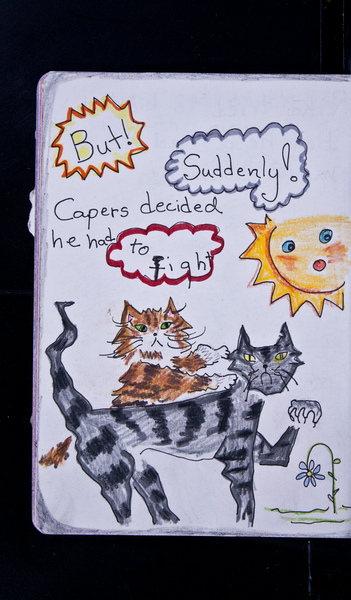 But!
Suddenly!
Capers decided
he had to
Fight